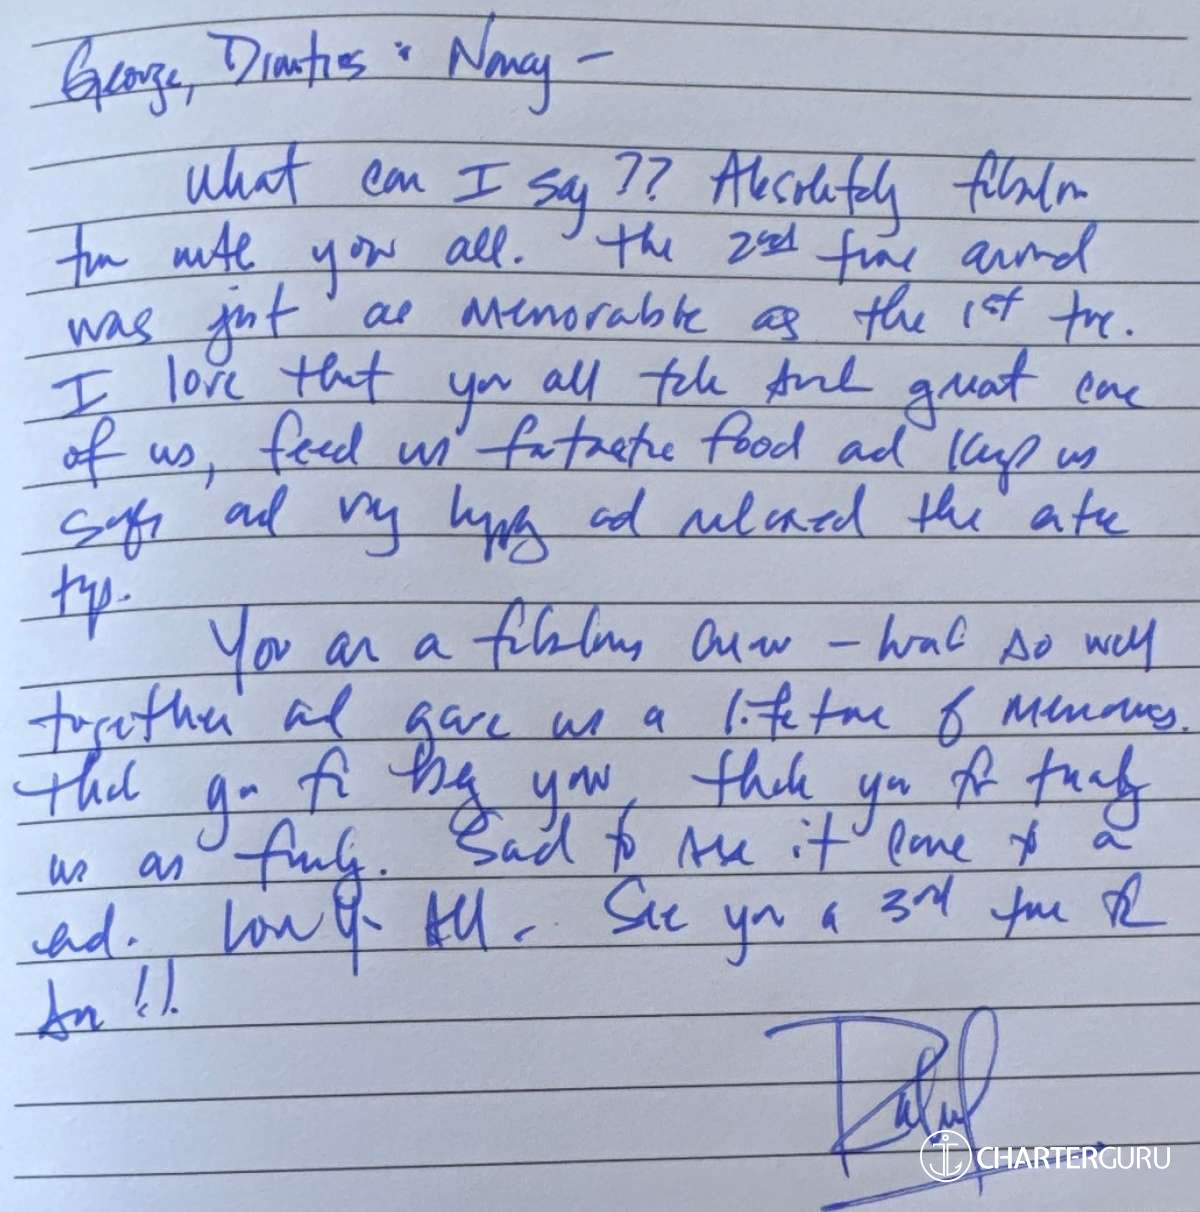 George, Dimitris & Nancy –
What can I say ?? Absolutely fabulous
time with you all. The 2nd time around
was just as memorable as the 1st time.
I love that you all take such great care
of us, feed us fantastic food and keep us
safe and very happy and relaxed the entire
trip.
You are a fabulous crew – work so well
together and gave us a lifetime of memories.
Thank you for being you, thank you for treating
us as family. Sad to see it come to an
end. Love Y'all. See you a 3rd time for
sure !!
CHARTERGURU